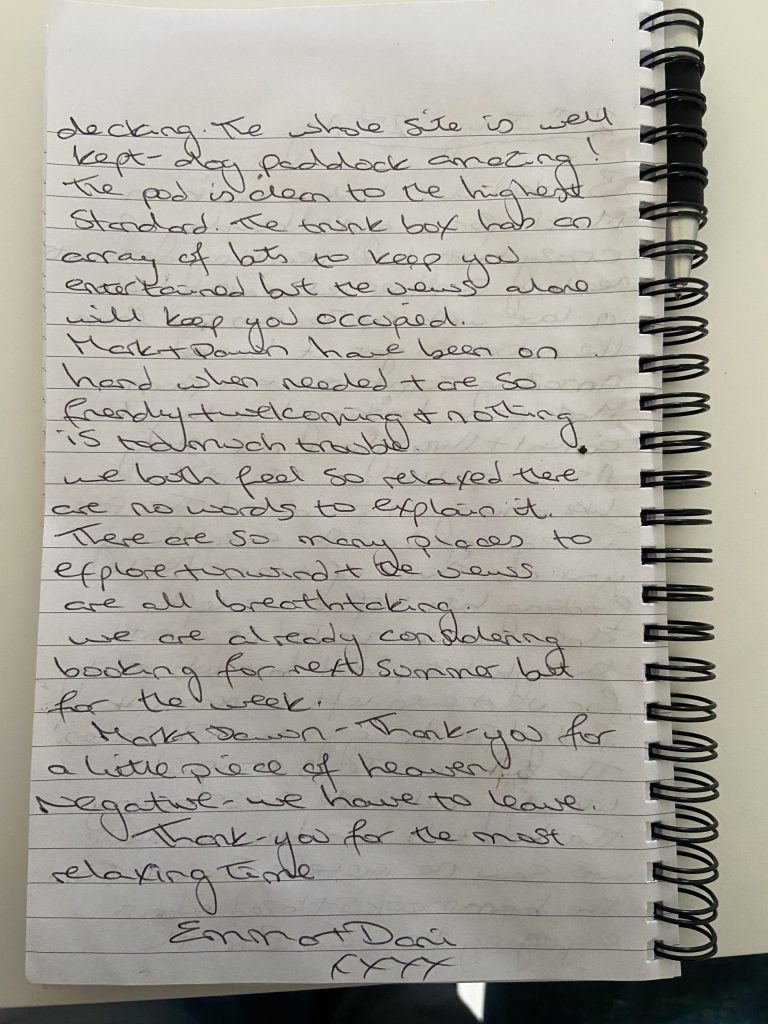 decking. The whole site is well
kept - dog paddock amazing!
The pod is clean to the highest
Standard. The trunk box has an
array of bits to keep you
entertained but the views alone
will keep you occupied.
Mark + Dawn have been on
hand when needed + are so
friendly + welcoming + nothing
is too much trouble.
we both feel so relaxed there
are no words to explain it.
There are so many places to
explore + unwind + the views
are all breathtaking.
we are already considering
booking for next summer but
for the week.
Mark + Dawn - Thank-you for
a little piece of heaven.
Negative - we have to leave.
Thank-you for the most
relaxing time
Emma + Dani
xxxx